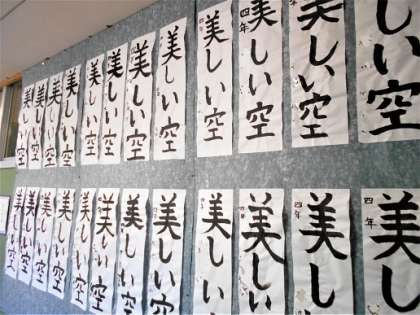 美しい空
美しい空
美しい空
美しい空
美しい空
美しい空
美しい空
美しい空
美しい空
四年
美しい空
美しい空
しい空
美しい空
美しい空
美しい空
美しい空
美しい空
美しい空
美しい空
美しい空
美しい
美しい空
美しい
四年
美し
四年